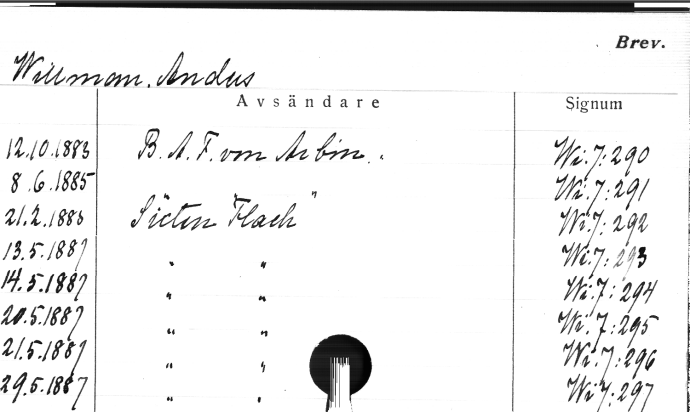 Brev.
Willman. Andus
Avsändare Signum
12.10.1883 B. A. F. von Arbin. Wi.7:290
8.6.1885 " " " Wi.7:291
21.2.1886 Sixten Flach Wi.7:292
13.5.1887 " " Wi.7:293
14.5.1887 " " Wi.7:294
20.5.1887 " " Wi.7:295
21.5.1887 " " Wi.7:296
29.5.1887 " " Wi.7:297